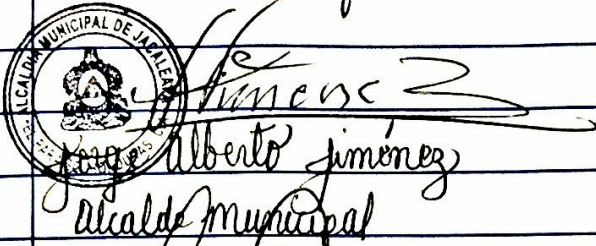 ALCALDIA MUNICIPAL DE JACALEAPA
Jimenez
Jorge Alberto Jiménez
Alcalde Municipal